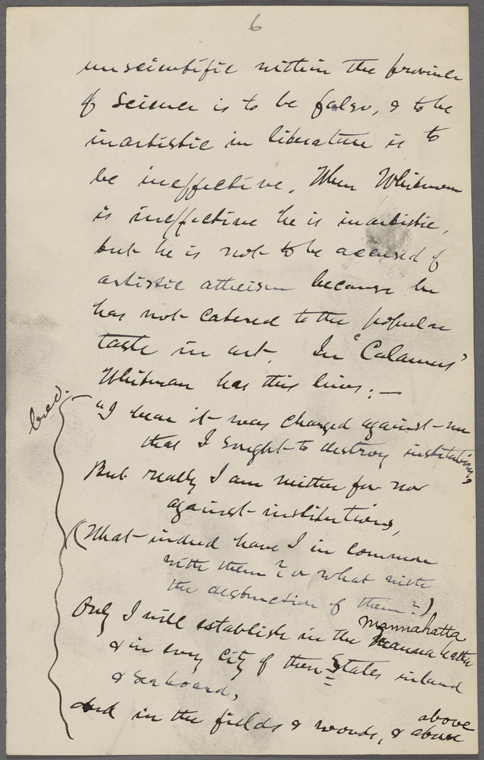 6
unscientific within the province
of science is to be false, & to be
inartistic in literature is to
be ineffective. When Whitman
is ineffective he is inartistic,
but he is not to be accused of
artistic atheism because he
has not catered to the popular
taste in art. In "Calamus"
Whitman has this lines: —
"I hear it was charged against me
that I sought to destroy institutions,
But really I am neither for nor
against institutions,
(What indeed have I in common
with them? or what with
the destruction of them?)
Only I will establish in the Mannahatta
mannahatta
& in every city of these States inland
& seaboard,
And in the fields & woods, & above
above